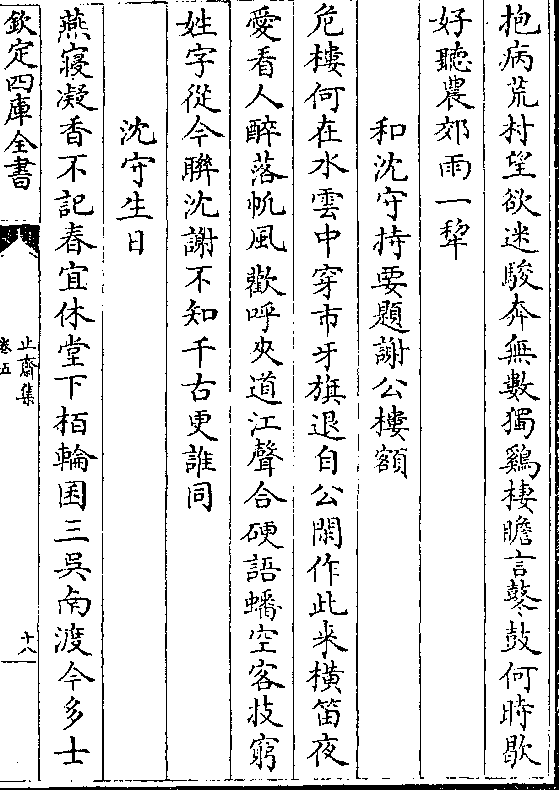 抱病荒村望欲迷駿奔無數獨鷄棲瞻言鼛鼓何時歇
好聽農郊雨一犂
和沈守持要題謝公樓額
危樓何在水雲中穿市牙旗退自公閑作此來橫笛夜
愛看人醉落帆風歡呼夾道江聲合硬語蟠空客技窮
姓字從今聨沈謝不知千古更誰同
沈守生日
燕寢凝香不記春宜休堂下栢輪囷三吳南渡今多士
欽定四庫全書
止齋集
卷五
十八